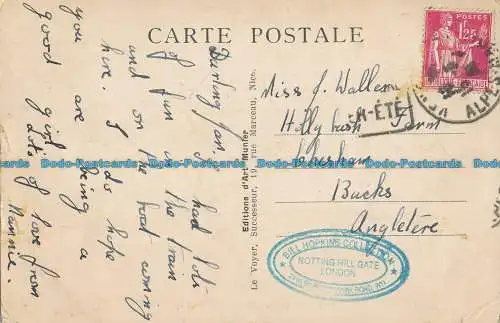 CARTE POSTALE
Darling Jan. We had lots
of fun on the train
and on the boat coming
here. I do hope
you are being a
good girl. Lots of love from
Nannie.
Editions d'Art Munier
Le Voyer, Successeur, 19, Rue Marceau, Nice.
Miss J. Wallem
Hollybush Farm
Chesham
Bucks
Angletère
POSTES
1F25
N-ÉTÉ
ALP
BILL HOPKINS COLLECTION
NOTTING HILL GATE
LONDON
Dodo-Postcards Dodo-Postcards Dodo-Postcards Dodo-Postcards Dodo-Postcards